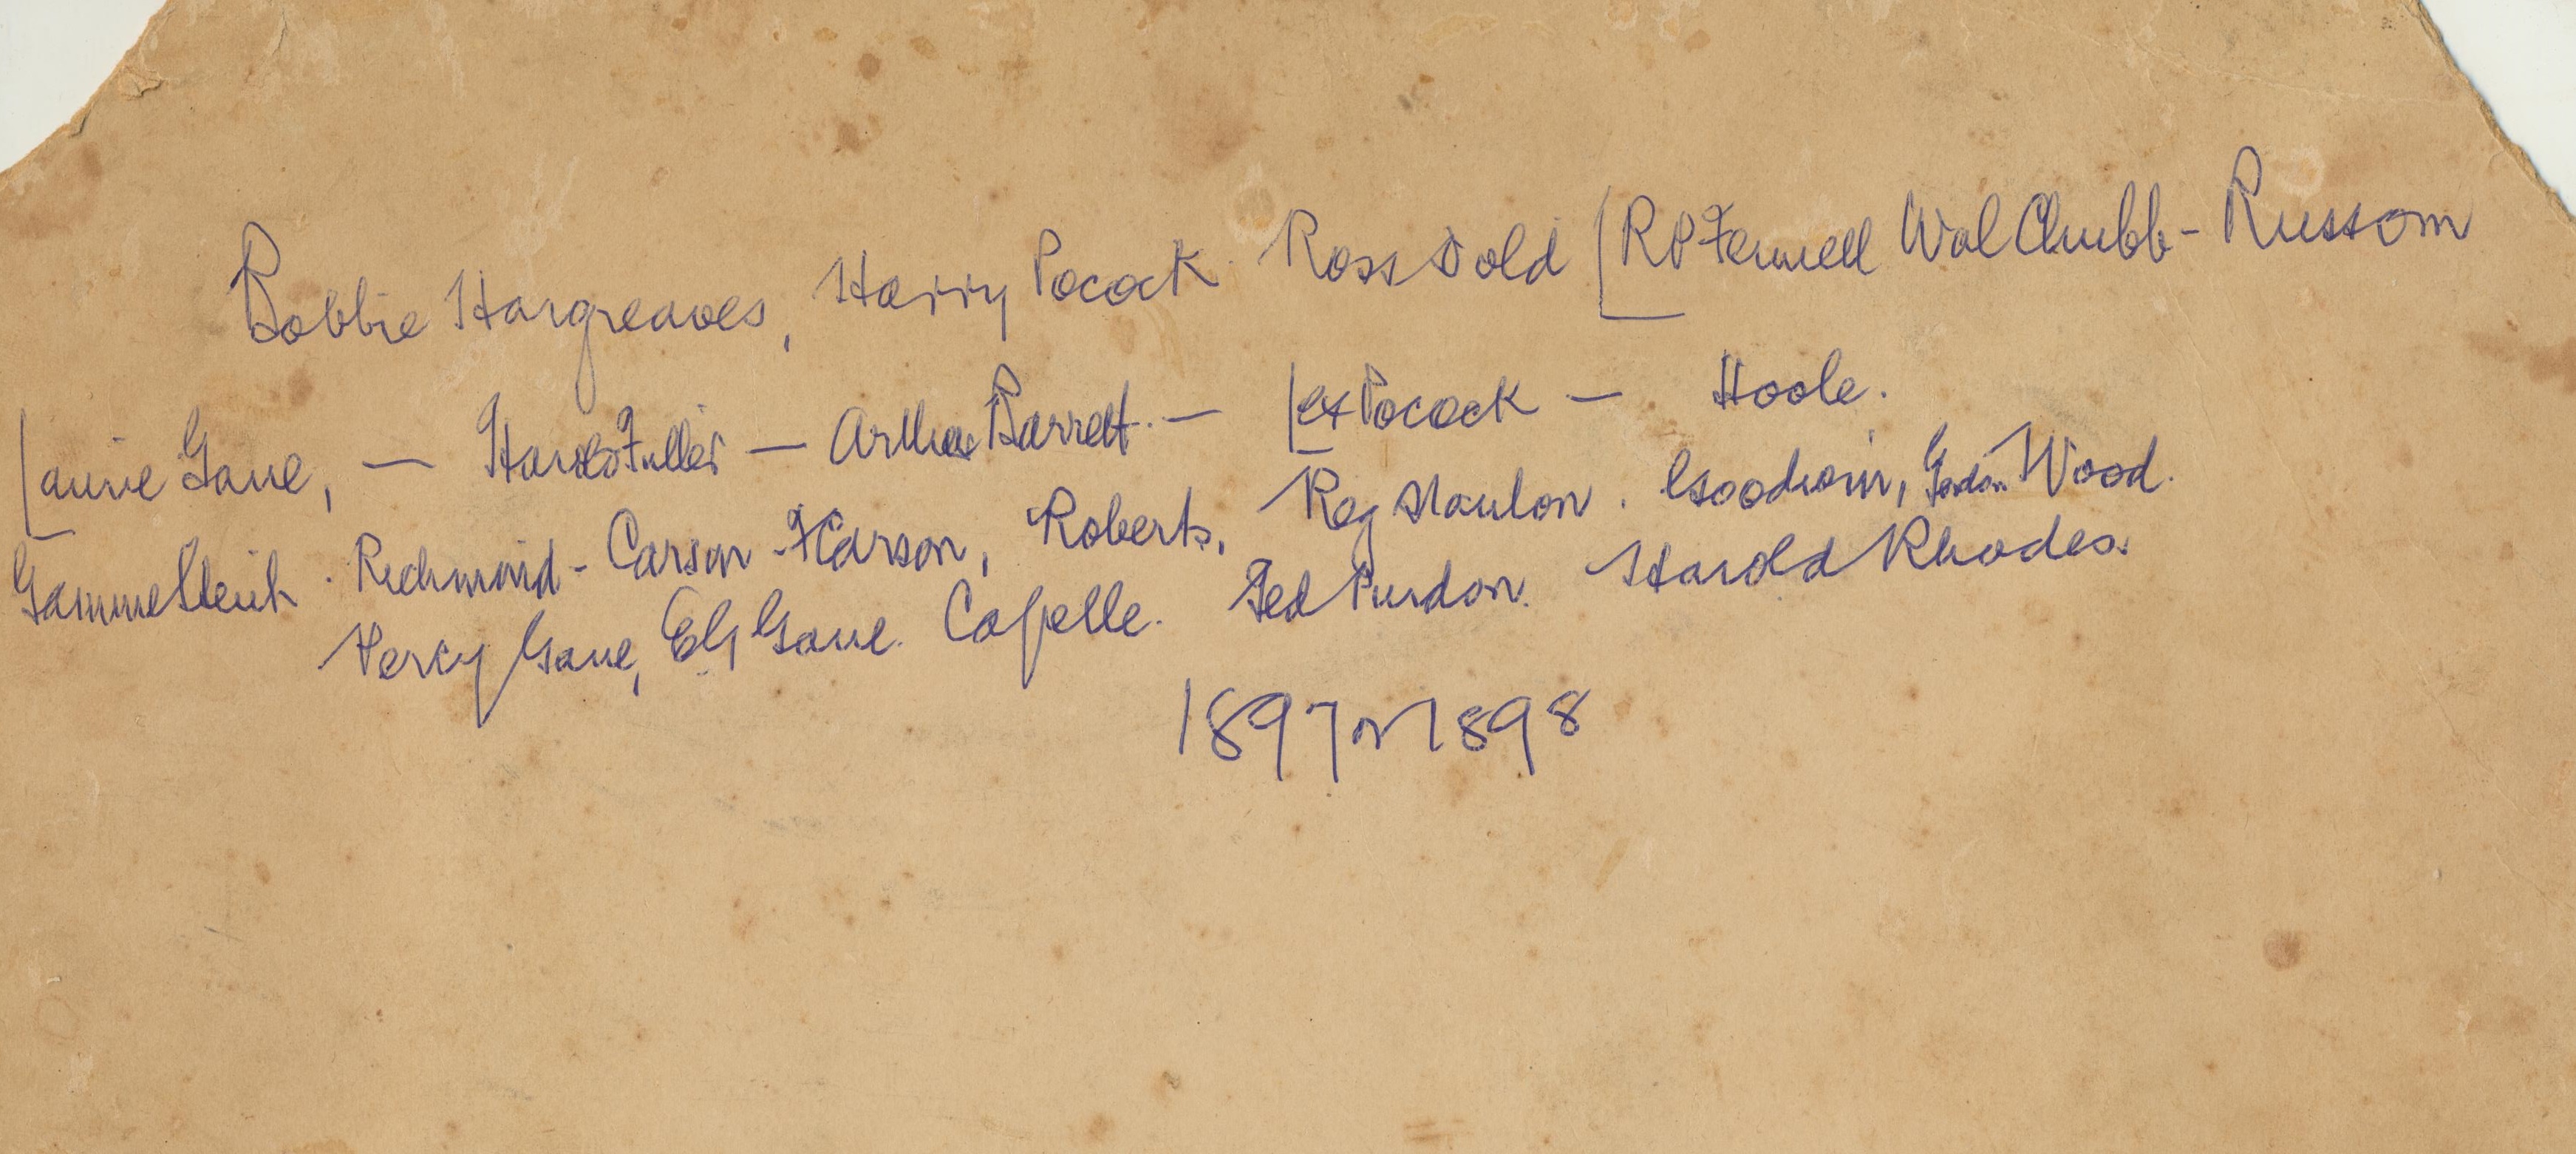 Bobbie Hargreaves, Harry Pocock. Ross Dold [RP Fennell Wal Chubb - Russom
Laurie Gane, — Harold Fuller — Arthur Barrett. — Lex Pocock — Hoole.
Richmond - Carson - Roberts, Reg Goodwin, Gordon Wood.
Percy Gane, EG Gane. Capelle. Ted Purdon. Harold Rhodes.
1897 or 1898